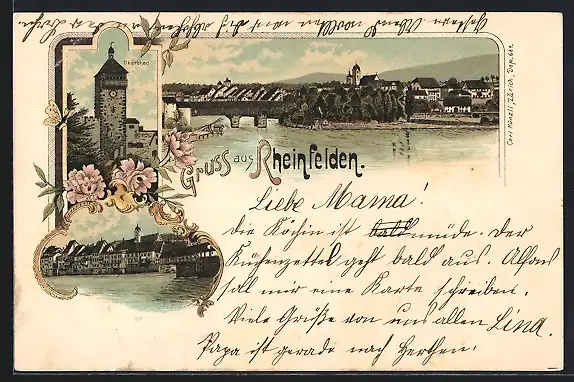 Obertor
Gruss aus Rheinfelden.
Carl Künzli, Zürich, Dep. 611.
Liebe Mama!
die Köchin ist bald müde. der
Küchenzettel geht bald aus. Alfons
soll mir eine Karte schreiben.
Viele Grüße von uns allen Lina.
Papa ist gerade nach Herthen.